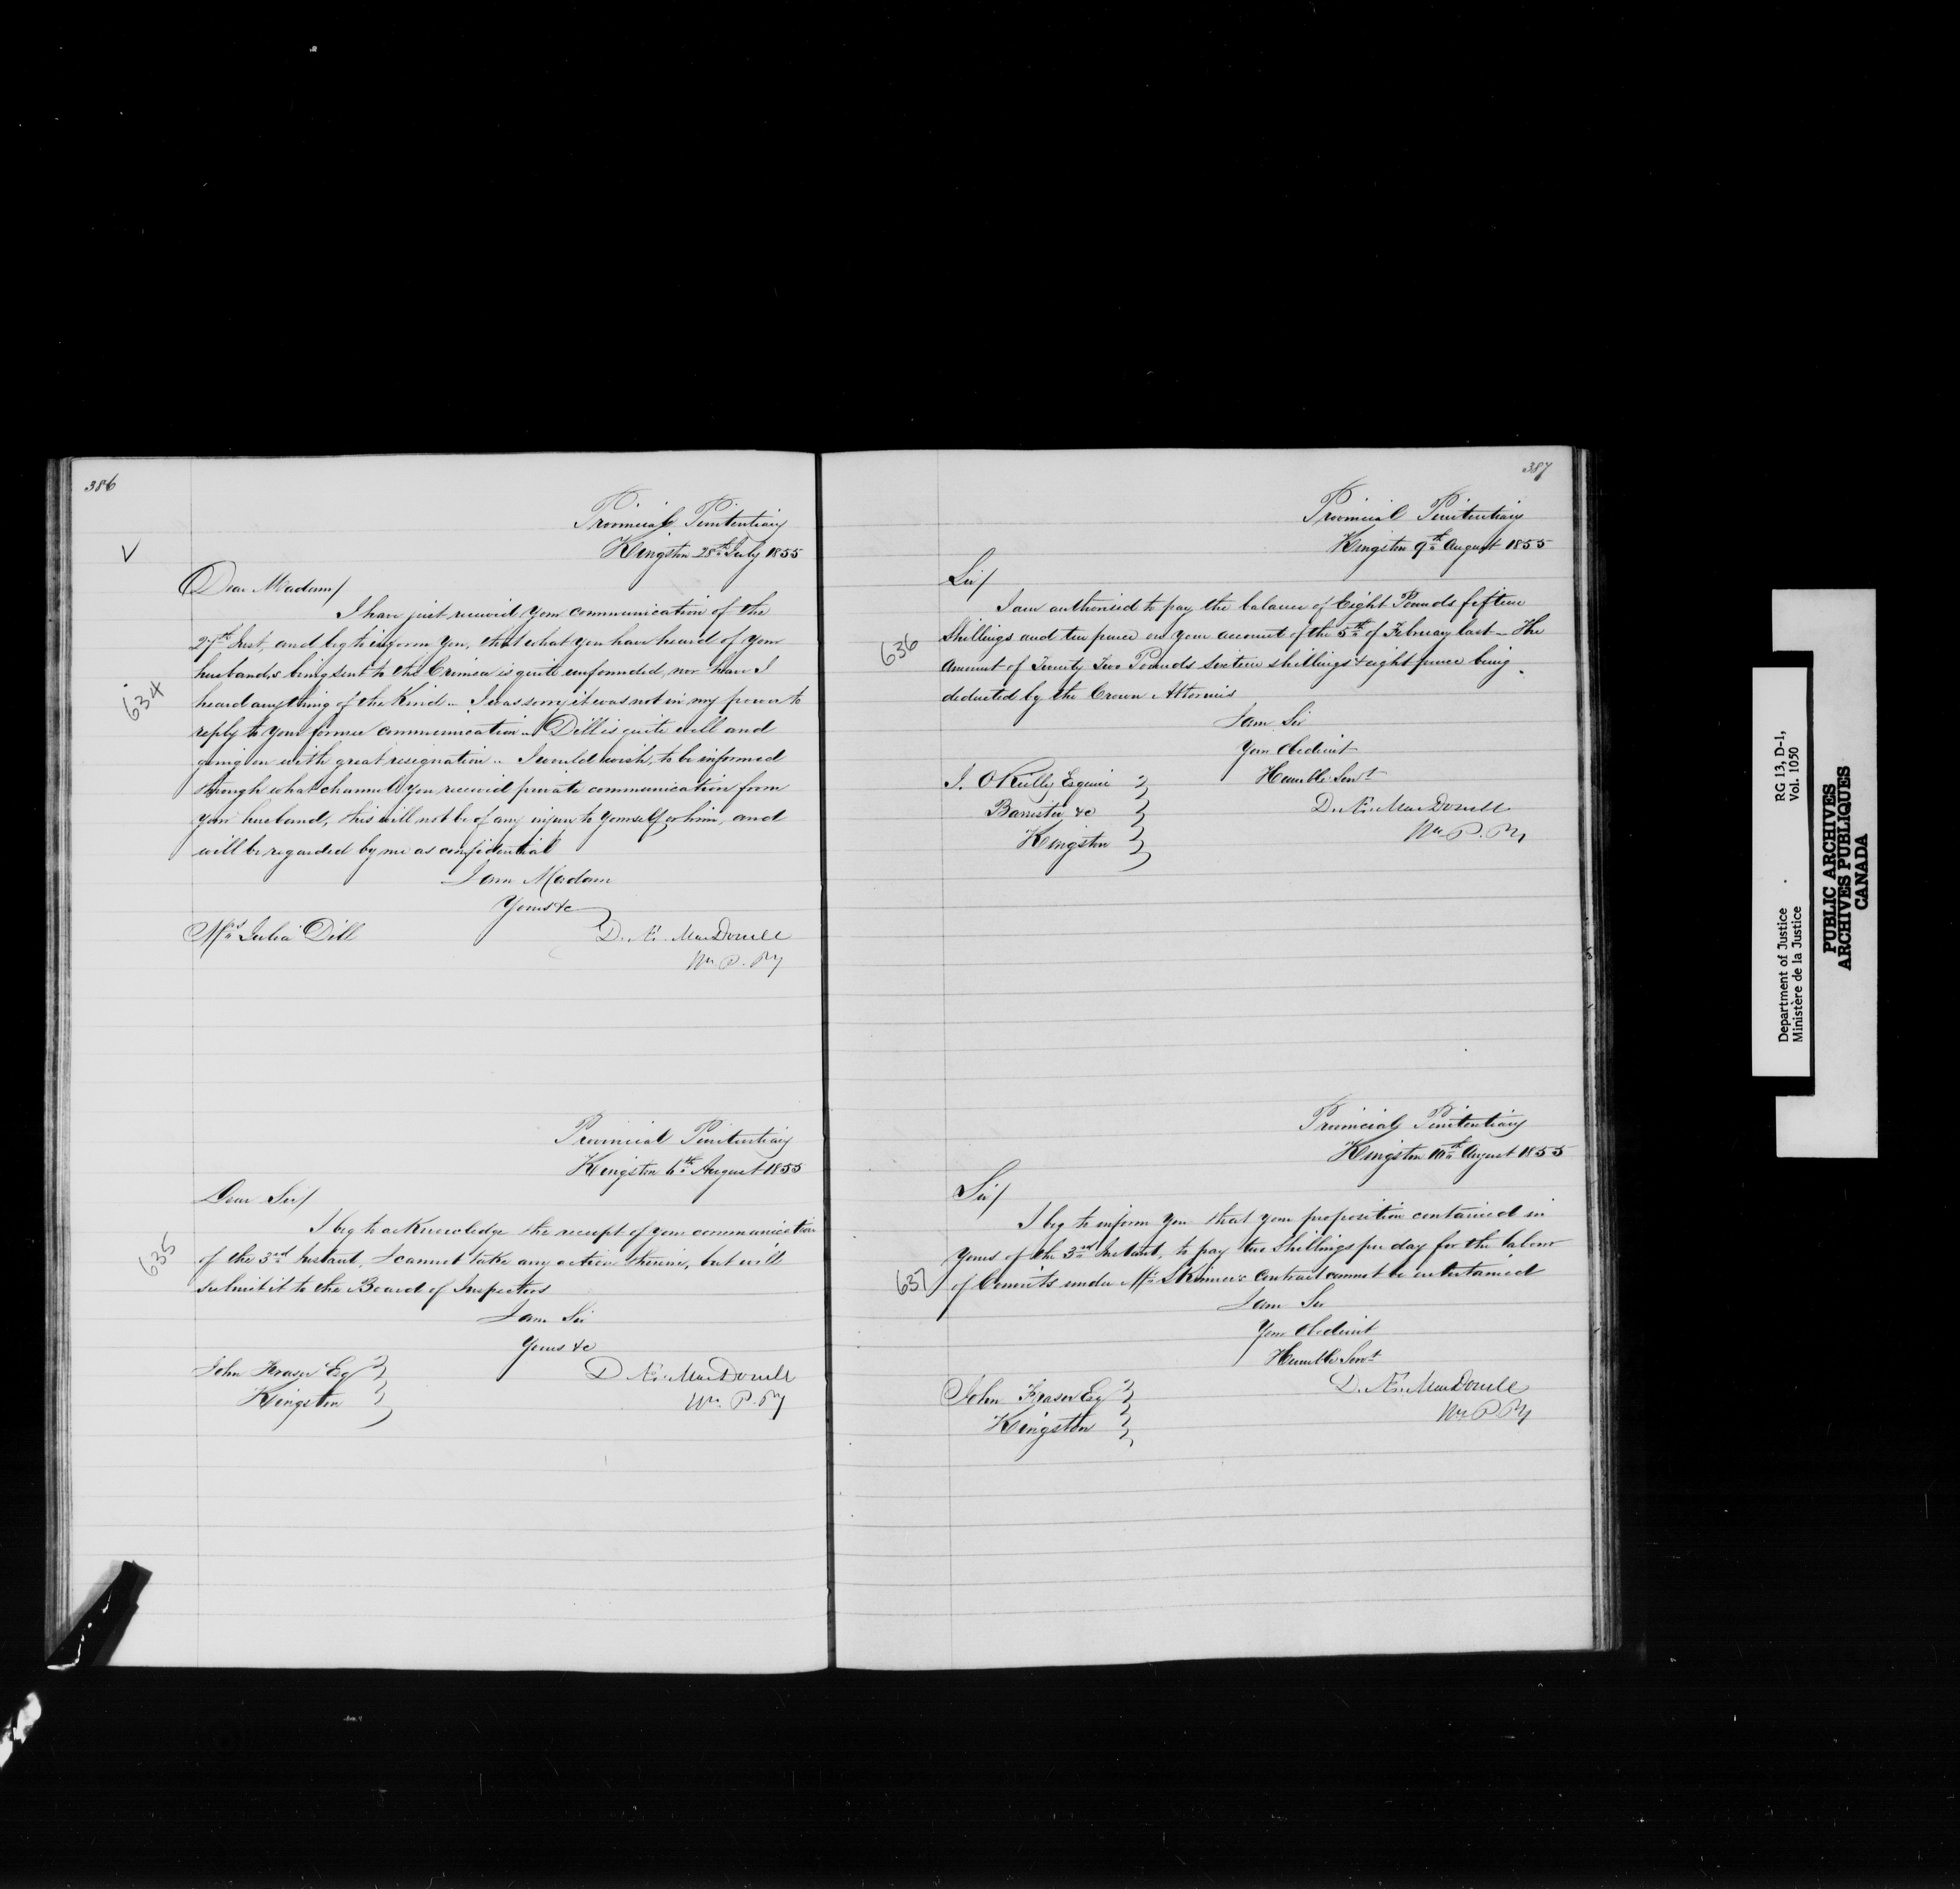 386
Provincial Penitentiary
Kingston 28th July 1855
Dear Madam/
I have just received your communication of the
27th Inst, and beg to inform you, that what you have heard of your
husband,s being sent to the Crimea is quite unfounded, nor have I
634
heard anything of the Kind - I was sorry it was not in my power to
reply to your former communication - Dill is quite well and
going on with great resignation - I would wish, to be informed
through what channel you received private communication from
your husband, this will not be of any injury to yourself or him, and
will be regarded by me as confidential
I am Madam
Yours &c
Mrs Julia Dill
D. Æ. MacDonell
Wn. P. Py
Provincial Penitentiary
Kingston 6th August 1855
Dear Sir/
I beg to acknowledge the receipt of your communication
635
of the 3rd Instant, I cannot take any action therein, but will
submit it to the Board of Inspectors
I am Sir
Yours &c
John Fraser Esq
Kingston
D. Æ. MacDonell
Wn. P. Py
387
Provincial Penitentiary
Kingston 9th August 1855
Sir/
I am authorised to pay the balance of Eight Pounds fifteen
636
Shillings and ten pence on your account of the 5th of February last - The
amount of Twenty Two Pounds sixteen shillings & eight pence being
deducted by the Crown Attornies
I am Sir
Your Obedient
Humble Servt
J. O'Reilly Esquire
Barrister &c
Kingston
D. Æ. MacDonell
Wn. P. Py
Provincial Penitentiary
Kingston 10th August 1855
Sir/
I beg to inform you that your proposition contained in
yours of the 3rd Instant, to pay two Shillings per day for the labor
637
of Convicts under Mr Skinner's Contract cannot be entertained
I am Sir
Your Obedient
Humble Servt
John Fraser Esq
Kingston
D. Æ. MacDonell
Wn. P. Py
Department of Justice
Ministère de la Justice
RG 13, D-1,
Vol. 1050
PUBLIC ARCHIVES
ARCHIVES PUBLIQUES
CANADA